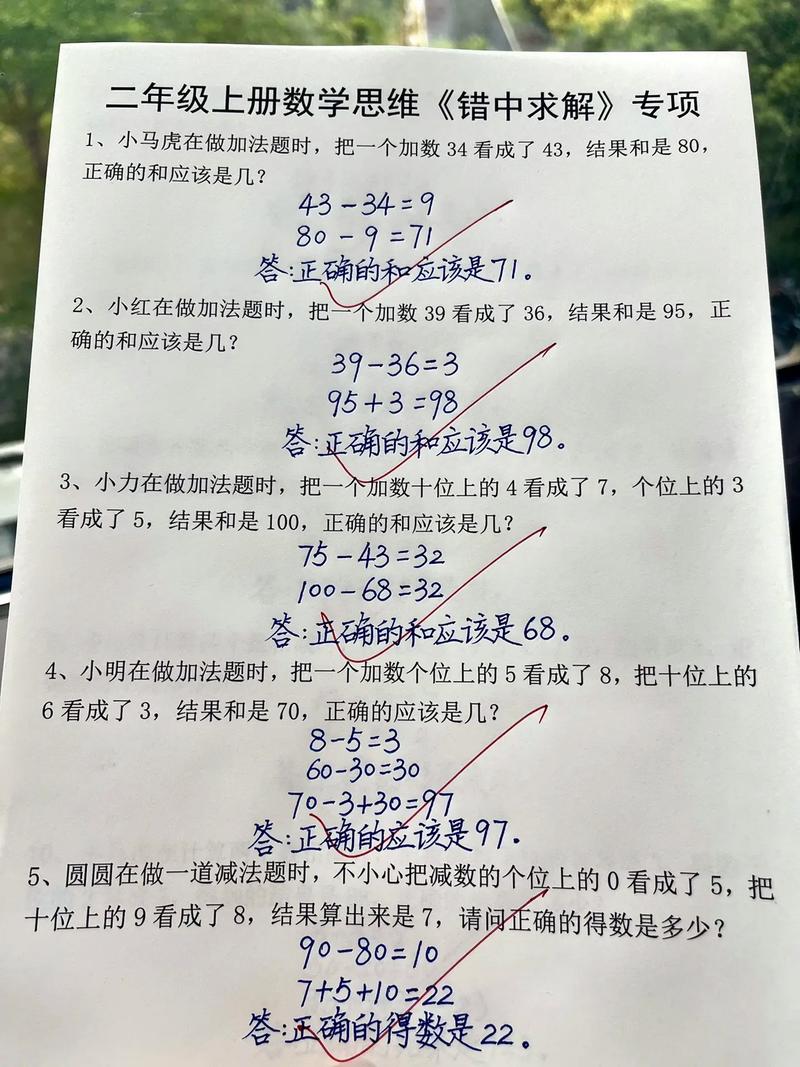 二年级上册数学思维《错中求解》专项
1、小马虎在做加法题时，把一个加数 34 看成了 43，结果和是 80，
正确的和应该是几？
43－34=9
80－9=71
答:正确的和应该是71。
2、小红在做加法题时，把一个加数 39 看成了 36，结果和是 95，正
确的和应该是几？
39－36=3
95+3=98
答:正确的和应该是98。
3、小力在做加法题时，把一个加数十位上的 4 看成了 7，个位上的 3
看成了 5，结果和是 100，正确的和应该是几？
75－43=32
100－68=32
答:正确的和应该是68。
4、小明在做加法题时，把一个加数个位上的 5 看成了 8，把十位上的
6 看成了 3，结果和是 70，正确的应该是几？
8－5=3
60－30=30
70－3+30=97
答:正确的应该是97.
5、圆圆在做一道减法题时，不小心把减数的个位上的 0 看成了 5，把
十位上的 9 看成了 8，结果算出来是 7，请问正确的得数是多少？
90－80=10
7+5+10=22
答:正确的得数是22。